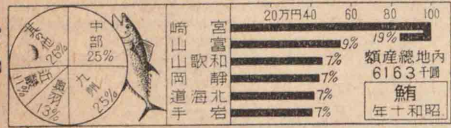 中部
25%
九州
25%
13%
其の他
26%
20万円40 60 80 100
宮崎 19%
富山 9%
和歌山 7%
静岡 7%
北海道 7%
岩手 7%
内地總産額
6163千圓
鮪
昭和十年